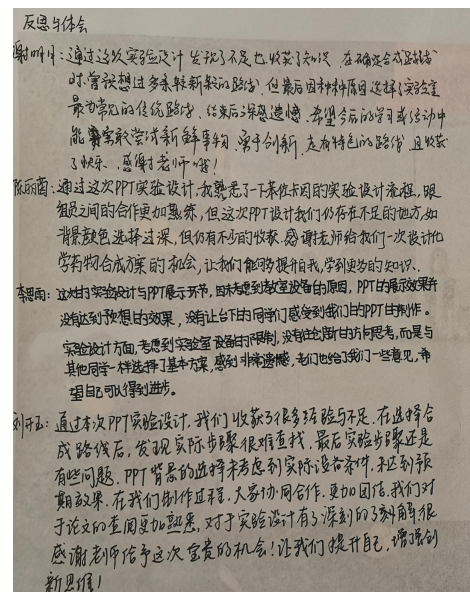 反思与体会
谢明月：通过这次实验设计 发现了不足也收获了知识 在确定合成路线
时，曾设想过多条较新颖的路线，但最后因种种原因选择了实验室
最为常见的传统路线，结束后深感遗憾，希望今后的学习或活动中
能敢尝试新鲜事物，勇于创新，走有特色的路线，且收获
了快乐，感谢老师哦！
陈丽茵：通过这次PPT实验设计，我熟悉了一下苯佐卡因的实验设计流程，跟
组员之间的合作更加熟练，但这次PPT设计我们仍存在不足的地方，如
背景颜色选择过深，但仍有不少的收获，感谢老师给我们一次设计化
学药物合成方案的机会，让我们能够提升自我，学到更多的知识。
李思雨：这次的实验设计与PPT展示环节，因未考虑到教室设备的原因，PPT的展示效果并
没有达到预想的效果，没有让台下的同学们感受到我们组的PPT的制作。
实验设计方面，考虑到实验室设备的限制，没有往创新的方向思考，而是与
其他同学一样选择了基本方案，感到非常遗憾，老师们也给了我们一些意见，希
望自己可以得到进步。
刘玉：通过本次PPT实验设计，我们收获了很多经验与不足，在选择合
成路线后，发现实际步骤很难查找，最后实验步骤还是
有些问题，PPT背景的选择未考虑到实际设备条件，未达到预
期效果，在我们制作过程，大家协同合作，更加团结，我们对
于论文的查阅更加熟悉，对于实验设计有了深刻的了解，很
感谢老师给予这次宝贵的机会！让我们提升自己，增强创
新思维！